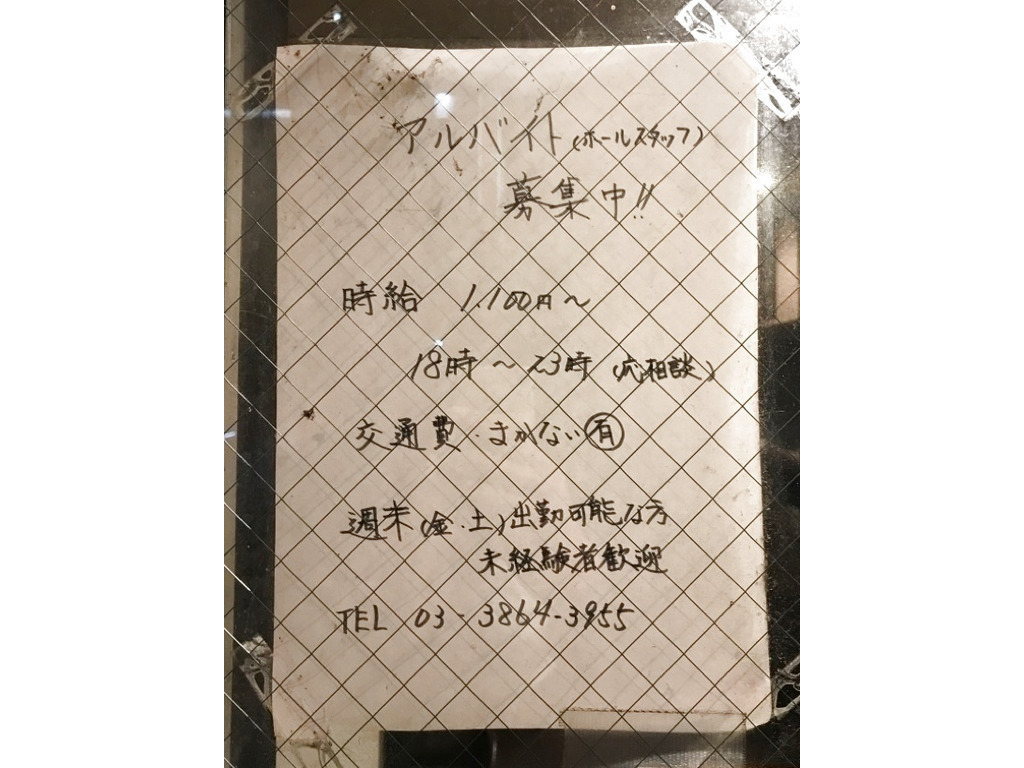 アルバイト(ホールスタッフ)
募集中!!
時給 1.100円～
18時～23時 (応相談)
交通費・まかない㊒
週末(金・土)出勤可能な方
未経験者歓迎
TEL 03-3864-3955